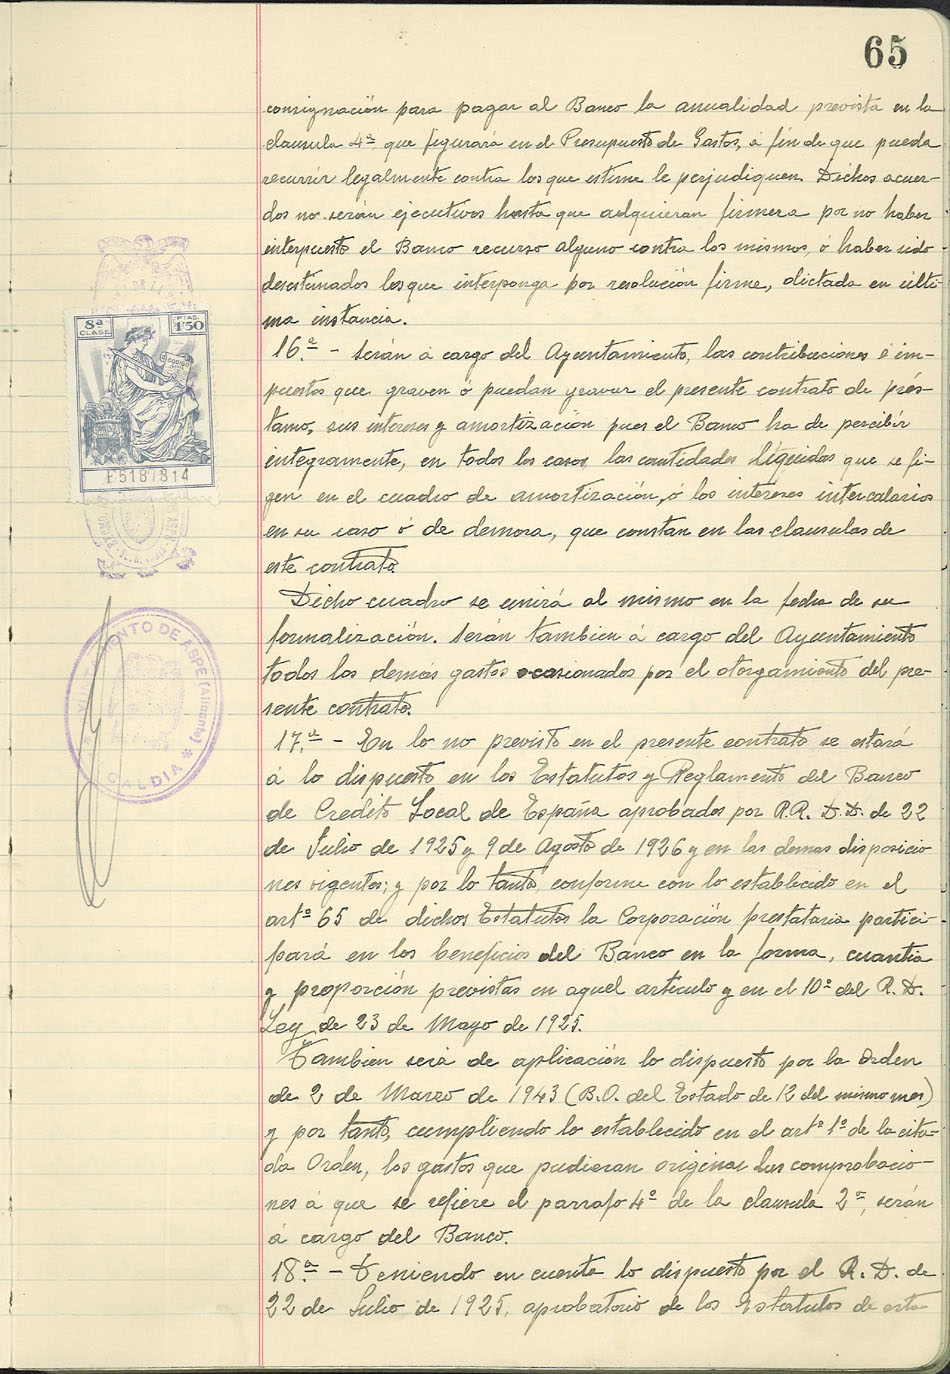 65
consignación para pagar al Banco la anualidad prevista en la
clausula 4ª que figurará en el Presupuesto de Gastos, á fin de que pueda
recurrir legalmente contra los que estime le perjudiquen. Dichos acuer-
dos no serán ejecutivos hasta que adquieran firmeza por no haber
interpuesto el Banco recurso alguno contra los mismos, ó haber sido
desestimados los que interponga por resolución firme, dictada en últi-
ma instancia.
16.ª - Serán á cargo del Ayuntamiento, las contribuciones é im-
puestos que graven ó puedan gravar el presente contrato de prés-
tamo, sus intereses y amortización pues el Banco ha de percibir
integramente, en todos los casos las cantidades líquidas que se fi-
gen en el cuadro de amortización, ó los intereses intercalarios
en su caso ó de demora, que constan en las clausulas de
este contrato.
Dicho cuadro se unirá al mismo en la fecha de su
formalización. Serán tambien á cargo del Ayuntamiento
todos los demás gastos ocasionados por el otorgamiento del pre-
sente contrato.
17.ª - En lo no previsto en el presente contrato se estará
á lo dispuesto en los Estatutos y Reglamento del Banco
de Credito Local de España aprobados por R.R. D.D. de 22
de Julio de 1925 y 9 de Agosto de 1926 y en las demas disposicio
nes vigentes; y por lo tanto, conforme con lo establecido en el
artº 65 de dichos Estatutos la Corporación prestataria partici-
pará en los beneficios del Banco en la forma, cuantia
y proporción previstas en aquel articulo y en el 10º del R. D.
Ley de 23 de Mayo de 1925.
Tambien será de aplicación lo dispuesto por la Orden
de 2 de Marzo de 1943 (B.O. del Estado de 12 del mismo mes)
y por tanto, cumpliendo lo establecido en el artº 1º de la cita-
da Orden, los gastos que pudieran originar las comprobacio-
nes á que se refiere el parrafo 4º de la clausula 2ª, serán
á cargo del Banco.
18.ª - Teniendo en cuenta lo dispuesto por el R. D. de
22 de Julio de 1925, aprobatorio de los Estatutos de esta
8ª
CLASE
PTAS.
1'50
E5187814
AYUNTAMIENTO DE ASPE (Alicante)
ALCALDIA